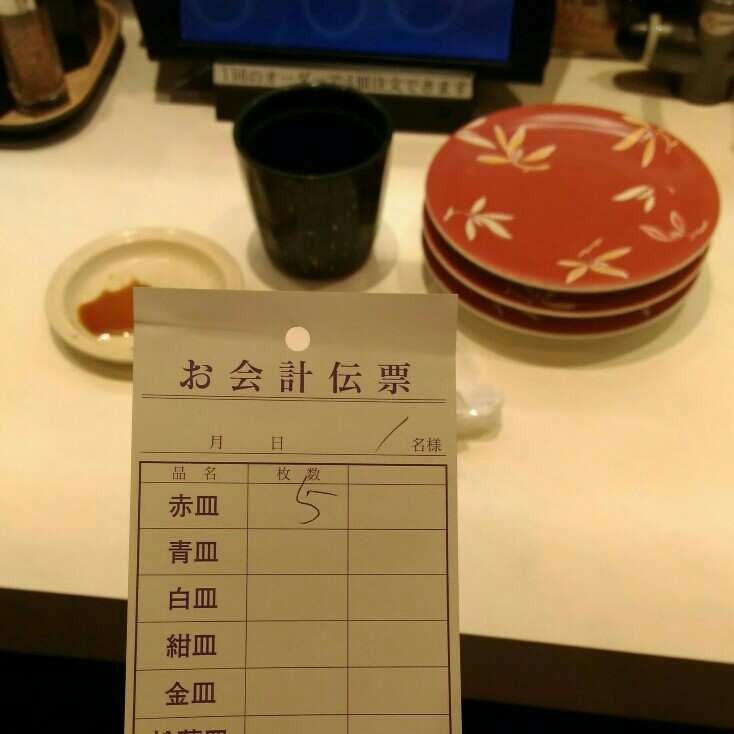 1回のオーダーで4皿注文できます
お会計伝票
月 日 1 名様
品名 枚数
赤皿 5
青皿
白皿
紺皿
金皿